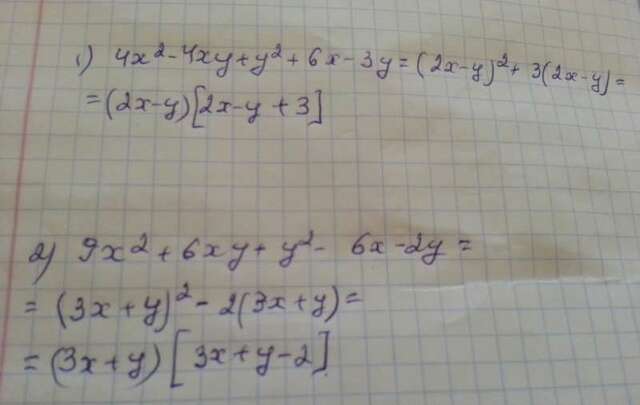 1) 4x² - 4xy + y² + 6x - 3y = (2x-y)² + 3(2x-y) =
= (2x-y)[2x-y + 3]
2) 9x² + 6xy + y² - 6x - 2y =
= (3x + y)² - 2(3x + y) =
= (3x + y) [3x + y - 2]